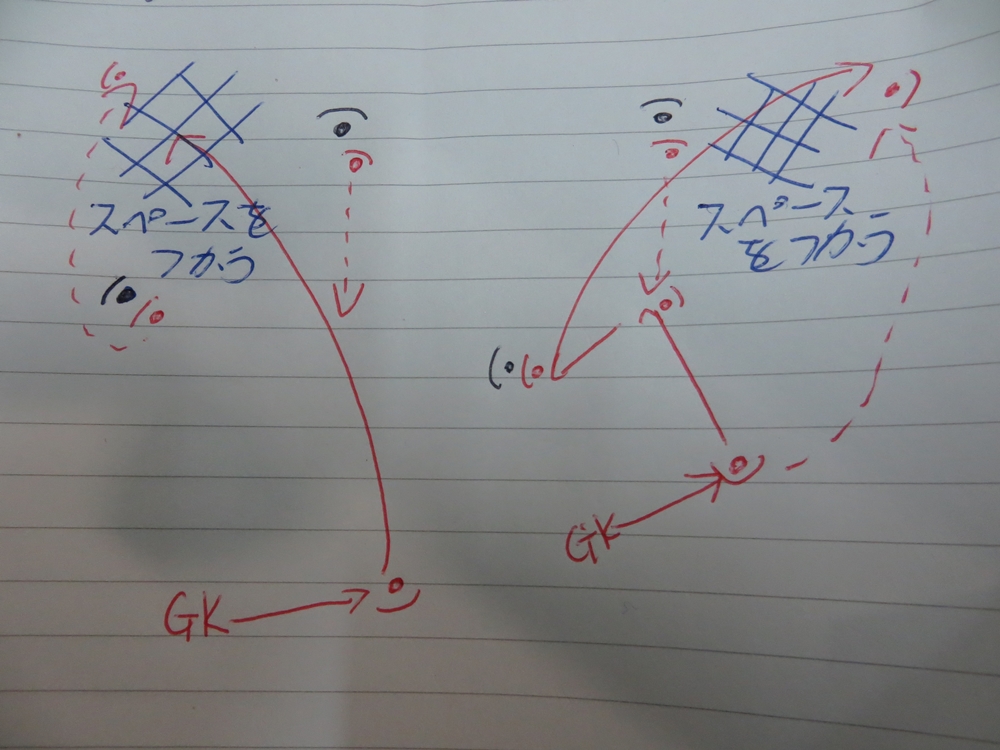 スペースを
つかう
スペース
をつくる
GK
GK